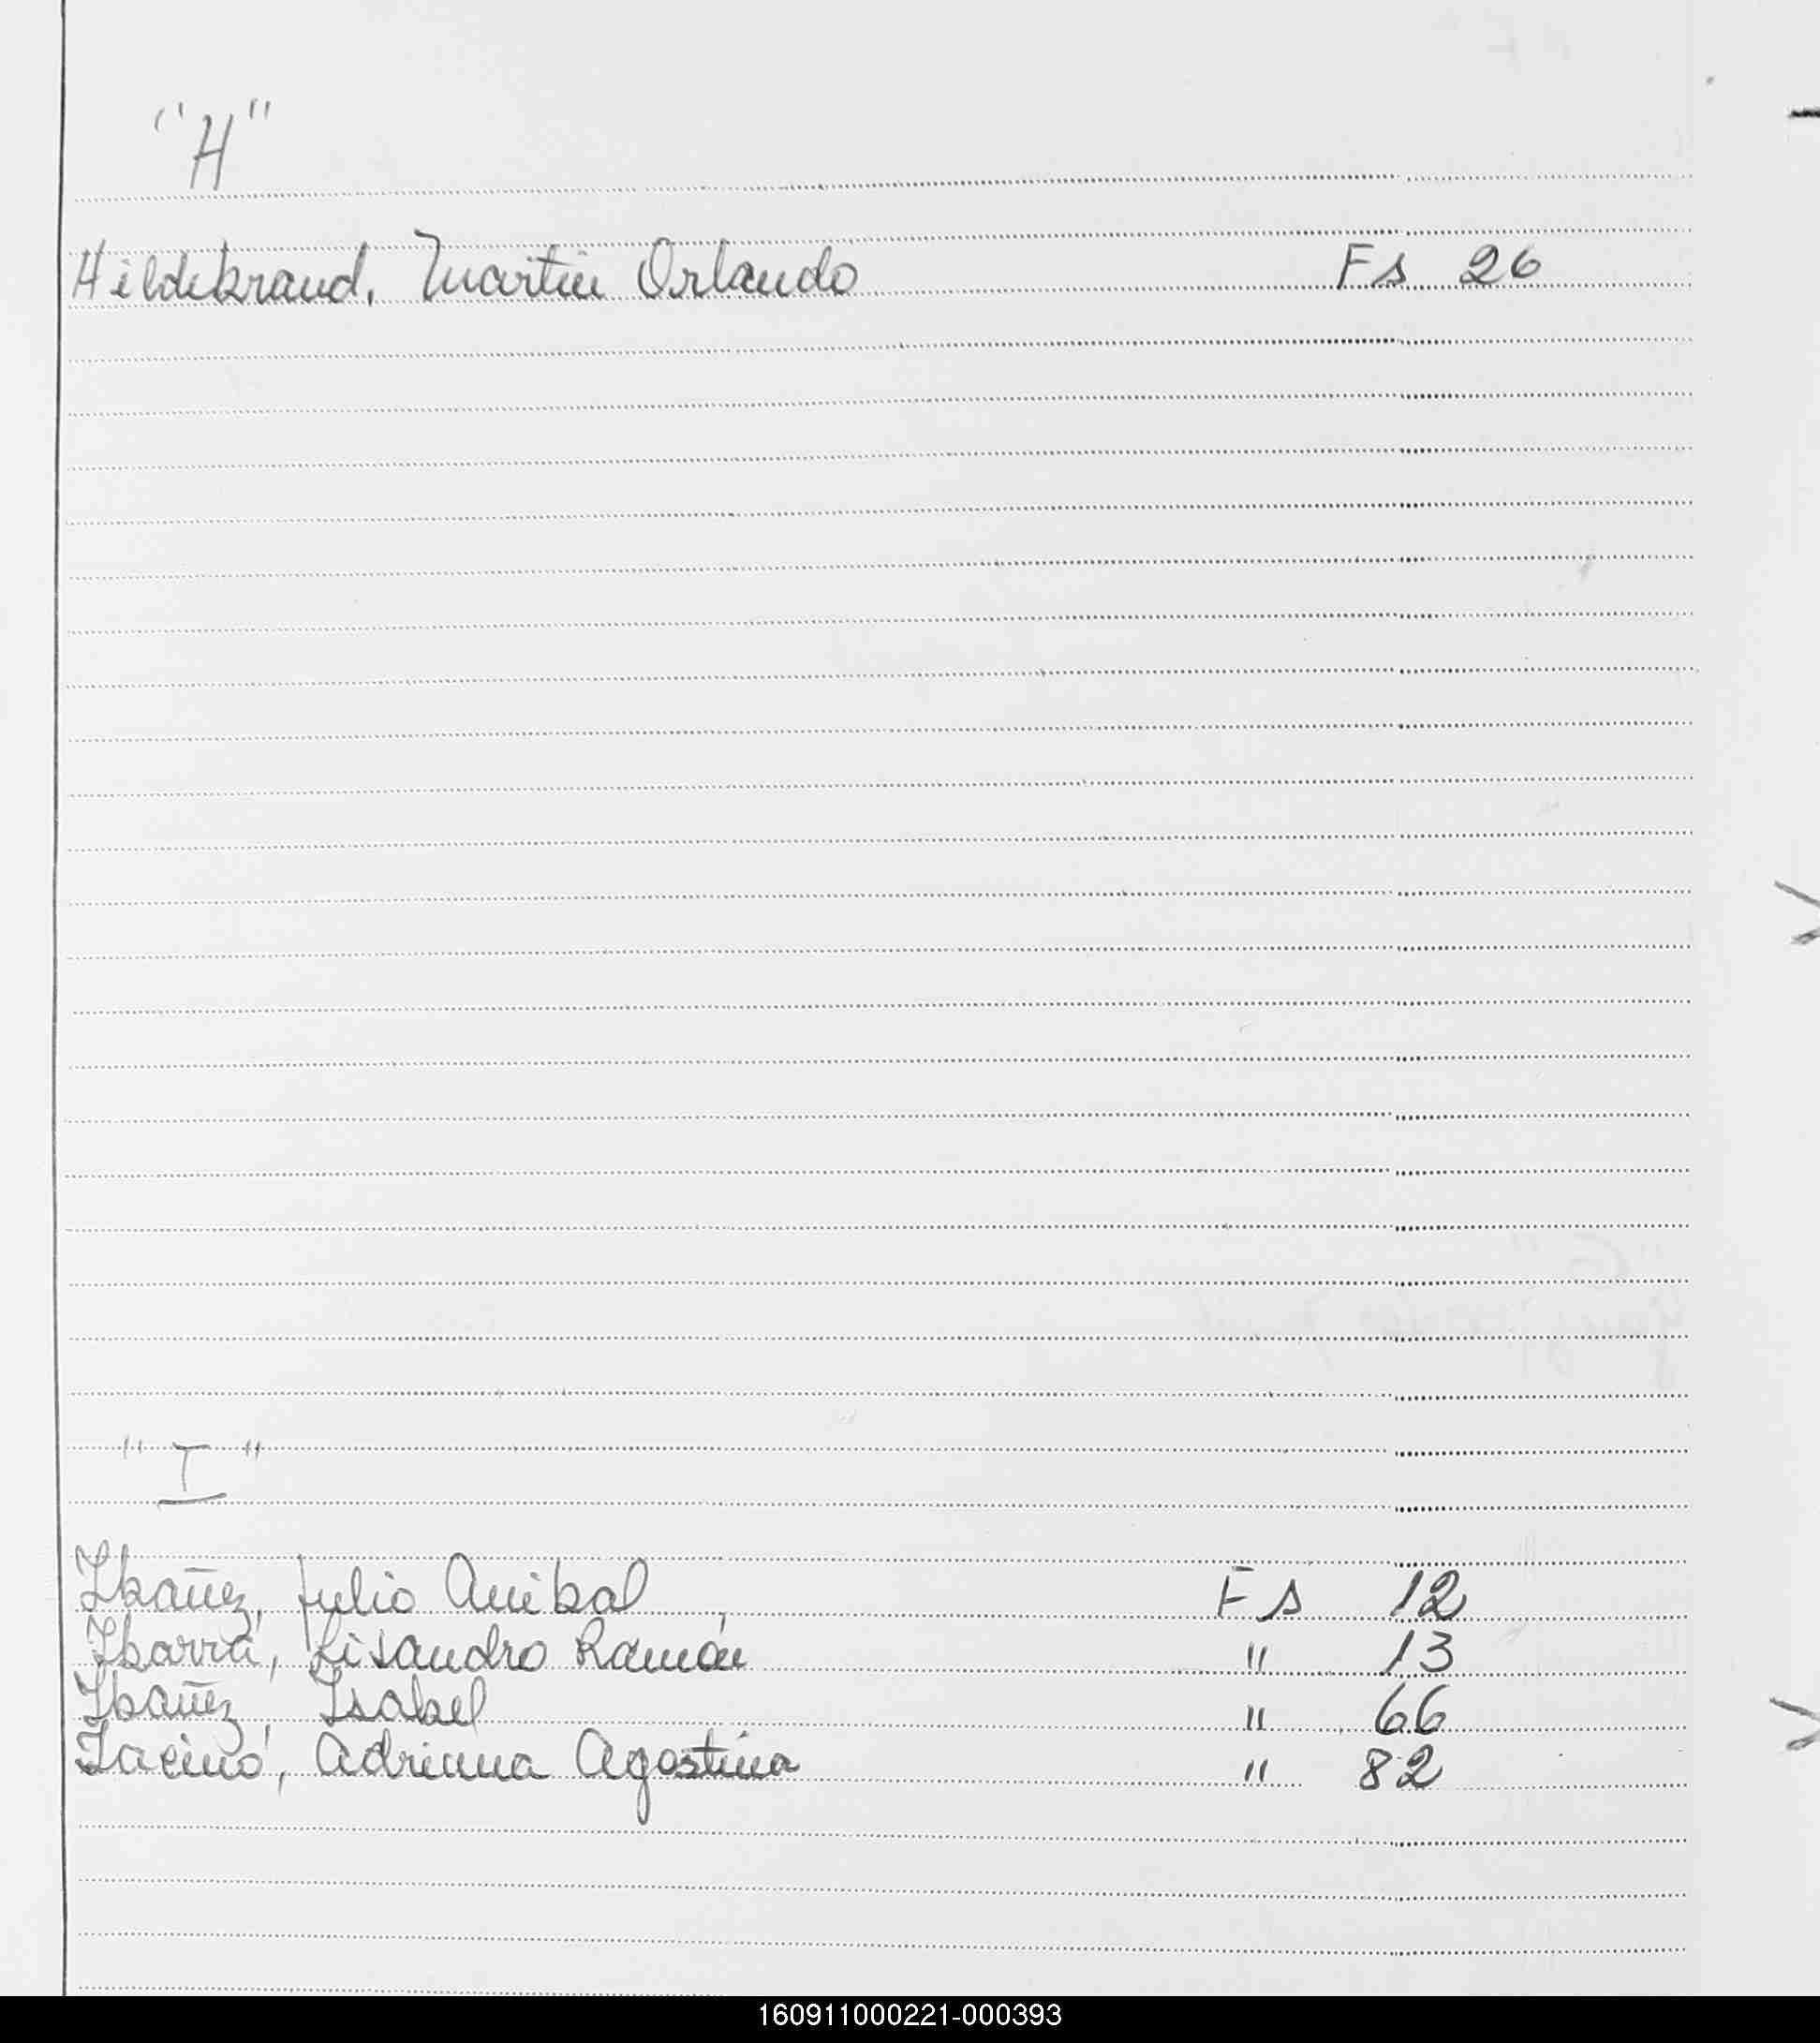 "H"
Hildebrand, Martin Orlando Fs 26
"I"
Ibañez, Julio Anibal Fs 12
Ibarra, Lisandro Ramón " 13
Ibañez, Isabel " 66
Iacinó, Adriana Agostina " 82
160911000221-000393